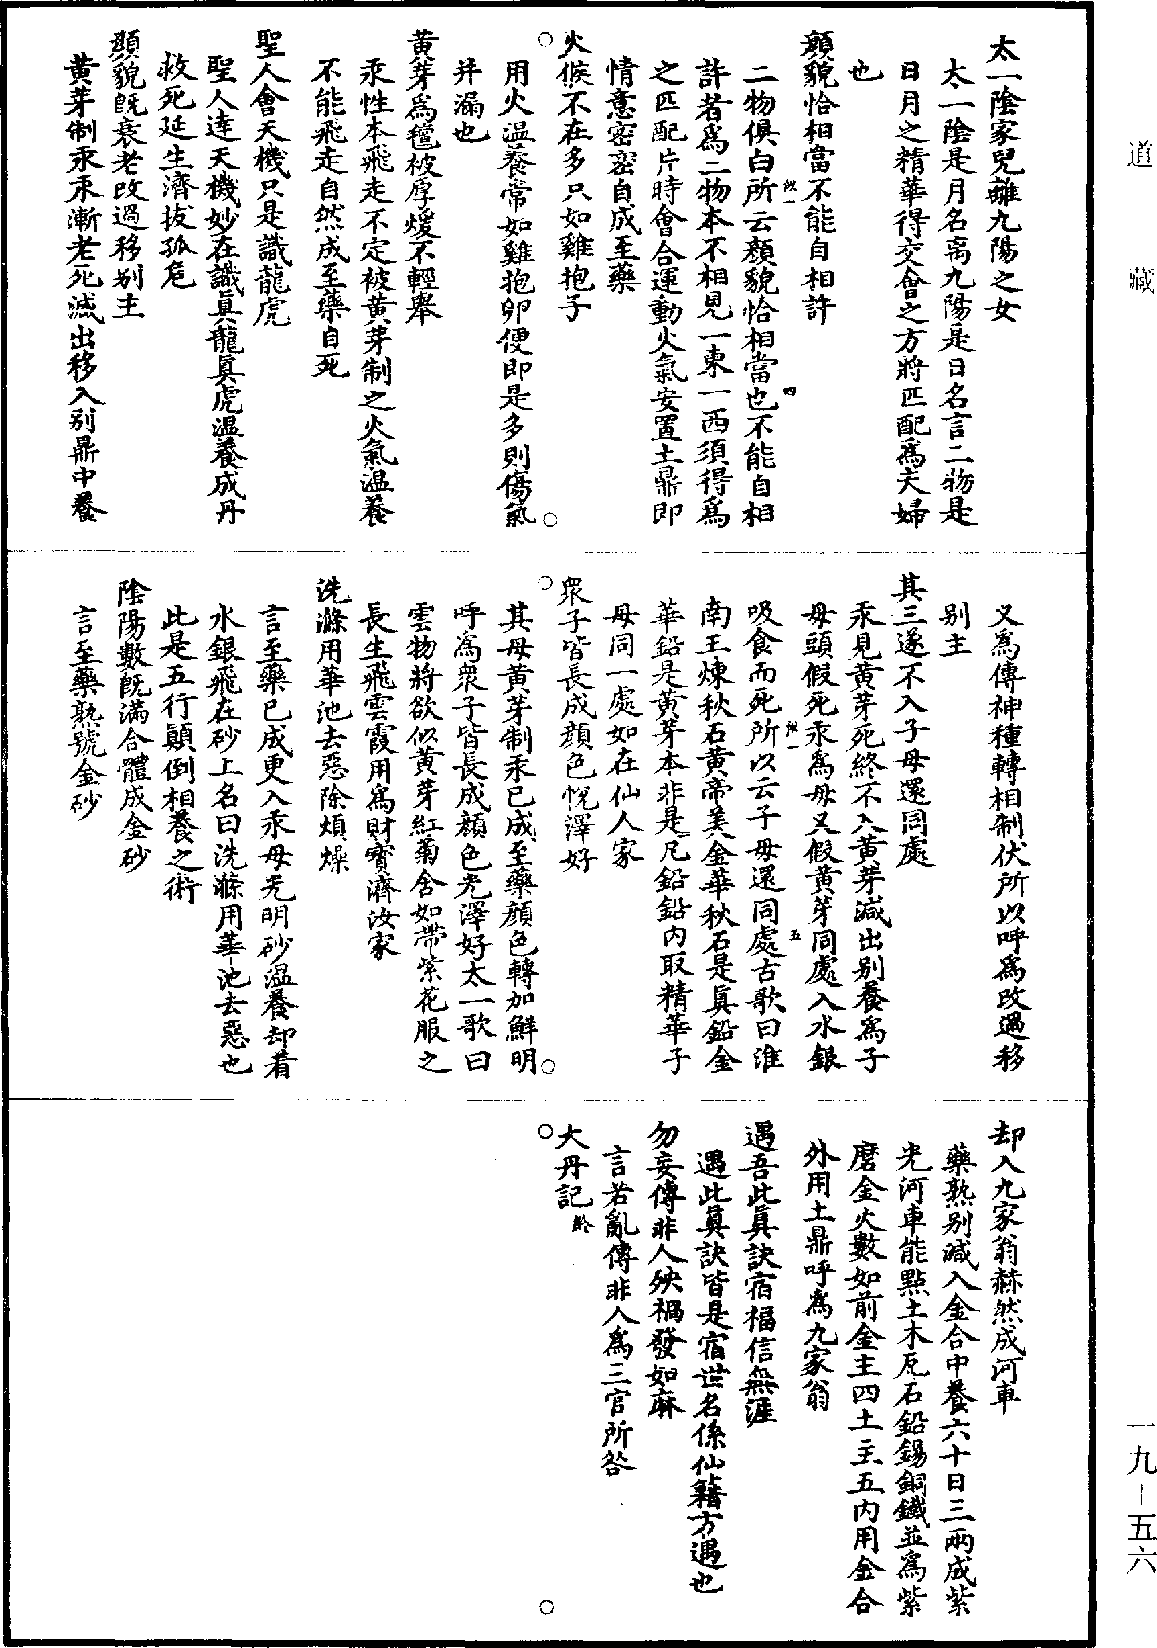 道藏
太一陰家兒離九陽之女
太一陰是月名离九陽是日名言二物是
日月之精華得交會之方將匹配爲夫婦
也
顏貌恰相當不能自相許
二物俱白所云顏貌恰相當也不能自相
許者爲二物本不相見一東一西須得爲
之匹配片時會合運動火氣安置土鼎即
情意密密自成至藥
火候不在多只如雞抱子
用火溫養常如雞抱卵便即是多則傷氣
并漏也
黃芽爲氊被厚煖不輕舉
汞性本飛走不定被黃芽制之火氣溫養
不能飛走自然成至藥自死
聖人會天機只是識龍虎
聖人達天機妙在識真龍真虎溫養成丹
救死延生濟拔孤危
顏貌旣衰老改過移別主
黃芽制汞汞漸老死滅出移入別鼎中養
又爲傳神種轉相制伏所以呼爲改過移
別主
其三遂不入子母還同處
汞見黃芽死終不入黃芽減出別養爲子
母頭假死汞爲母又假黃芽同處入水銀
吸食而死所以云子母還同處古歌曰淮
南王煉秋石黃帝美金華秋石是真鉛金
華鉛是黃芽本非是凡鉛鉛內取精華子
母同一處如在仙人家
衆子皆長成顏色悅澤好
其母黃芽制汞已成至藥顏色轉加鮮明
呼爲衆子皆長成顏色光澤好太一歌曰
雲物將欲似黃芽紅菊含如帶紫花服之
長生飛雲霞用爲財寳濟汝家
洗滌用華池去惡除煩燥
言至藥已成更入汞母光明砂溫養却着
水銀飛在砂上名曰洗滌用華池去惡也
此是五行顛倒相養之術
陰陽數旣滿合體成金砂
言至藥熟號金砂
却入九家翁赫然成河車
藥熟別減入金合中養六十日三兩成紫
光河車能點土木瓦石鉛錫銅鐵並爲紫
磨金火數如前金主四土主五內用金合
外用土鼎呼爲九家翁
遇吾此真訣宿福信無涯
遇此真訣皆是宿世名係仙籍方遇也
勿妄傳非人殃禍發如麻
言若亂傳非人爲三官所咎
大丹記
一九－五六